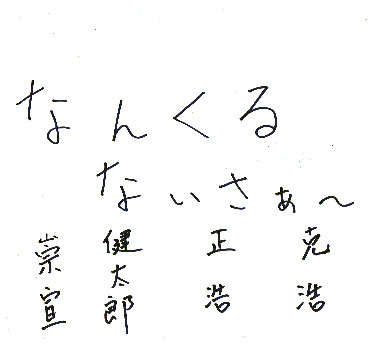 なんくる
ないさぁ〜
克浩
正浩
健太郎
崇宣